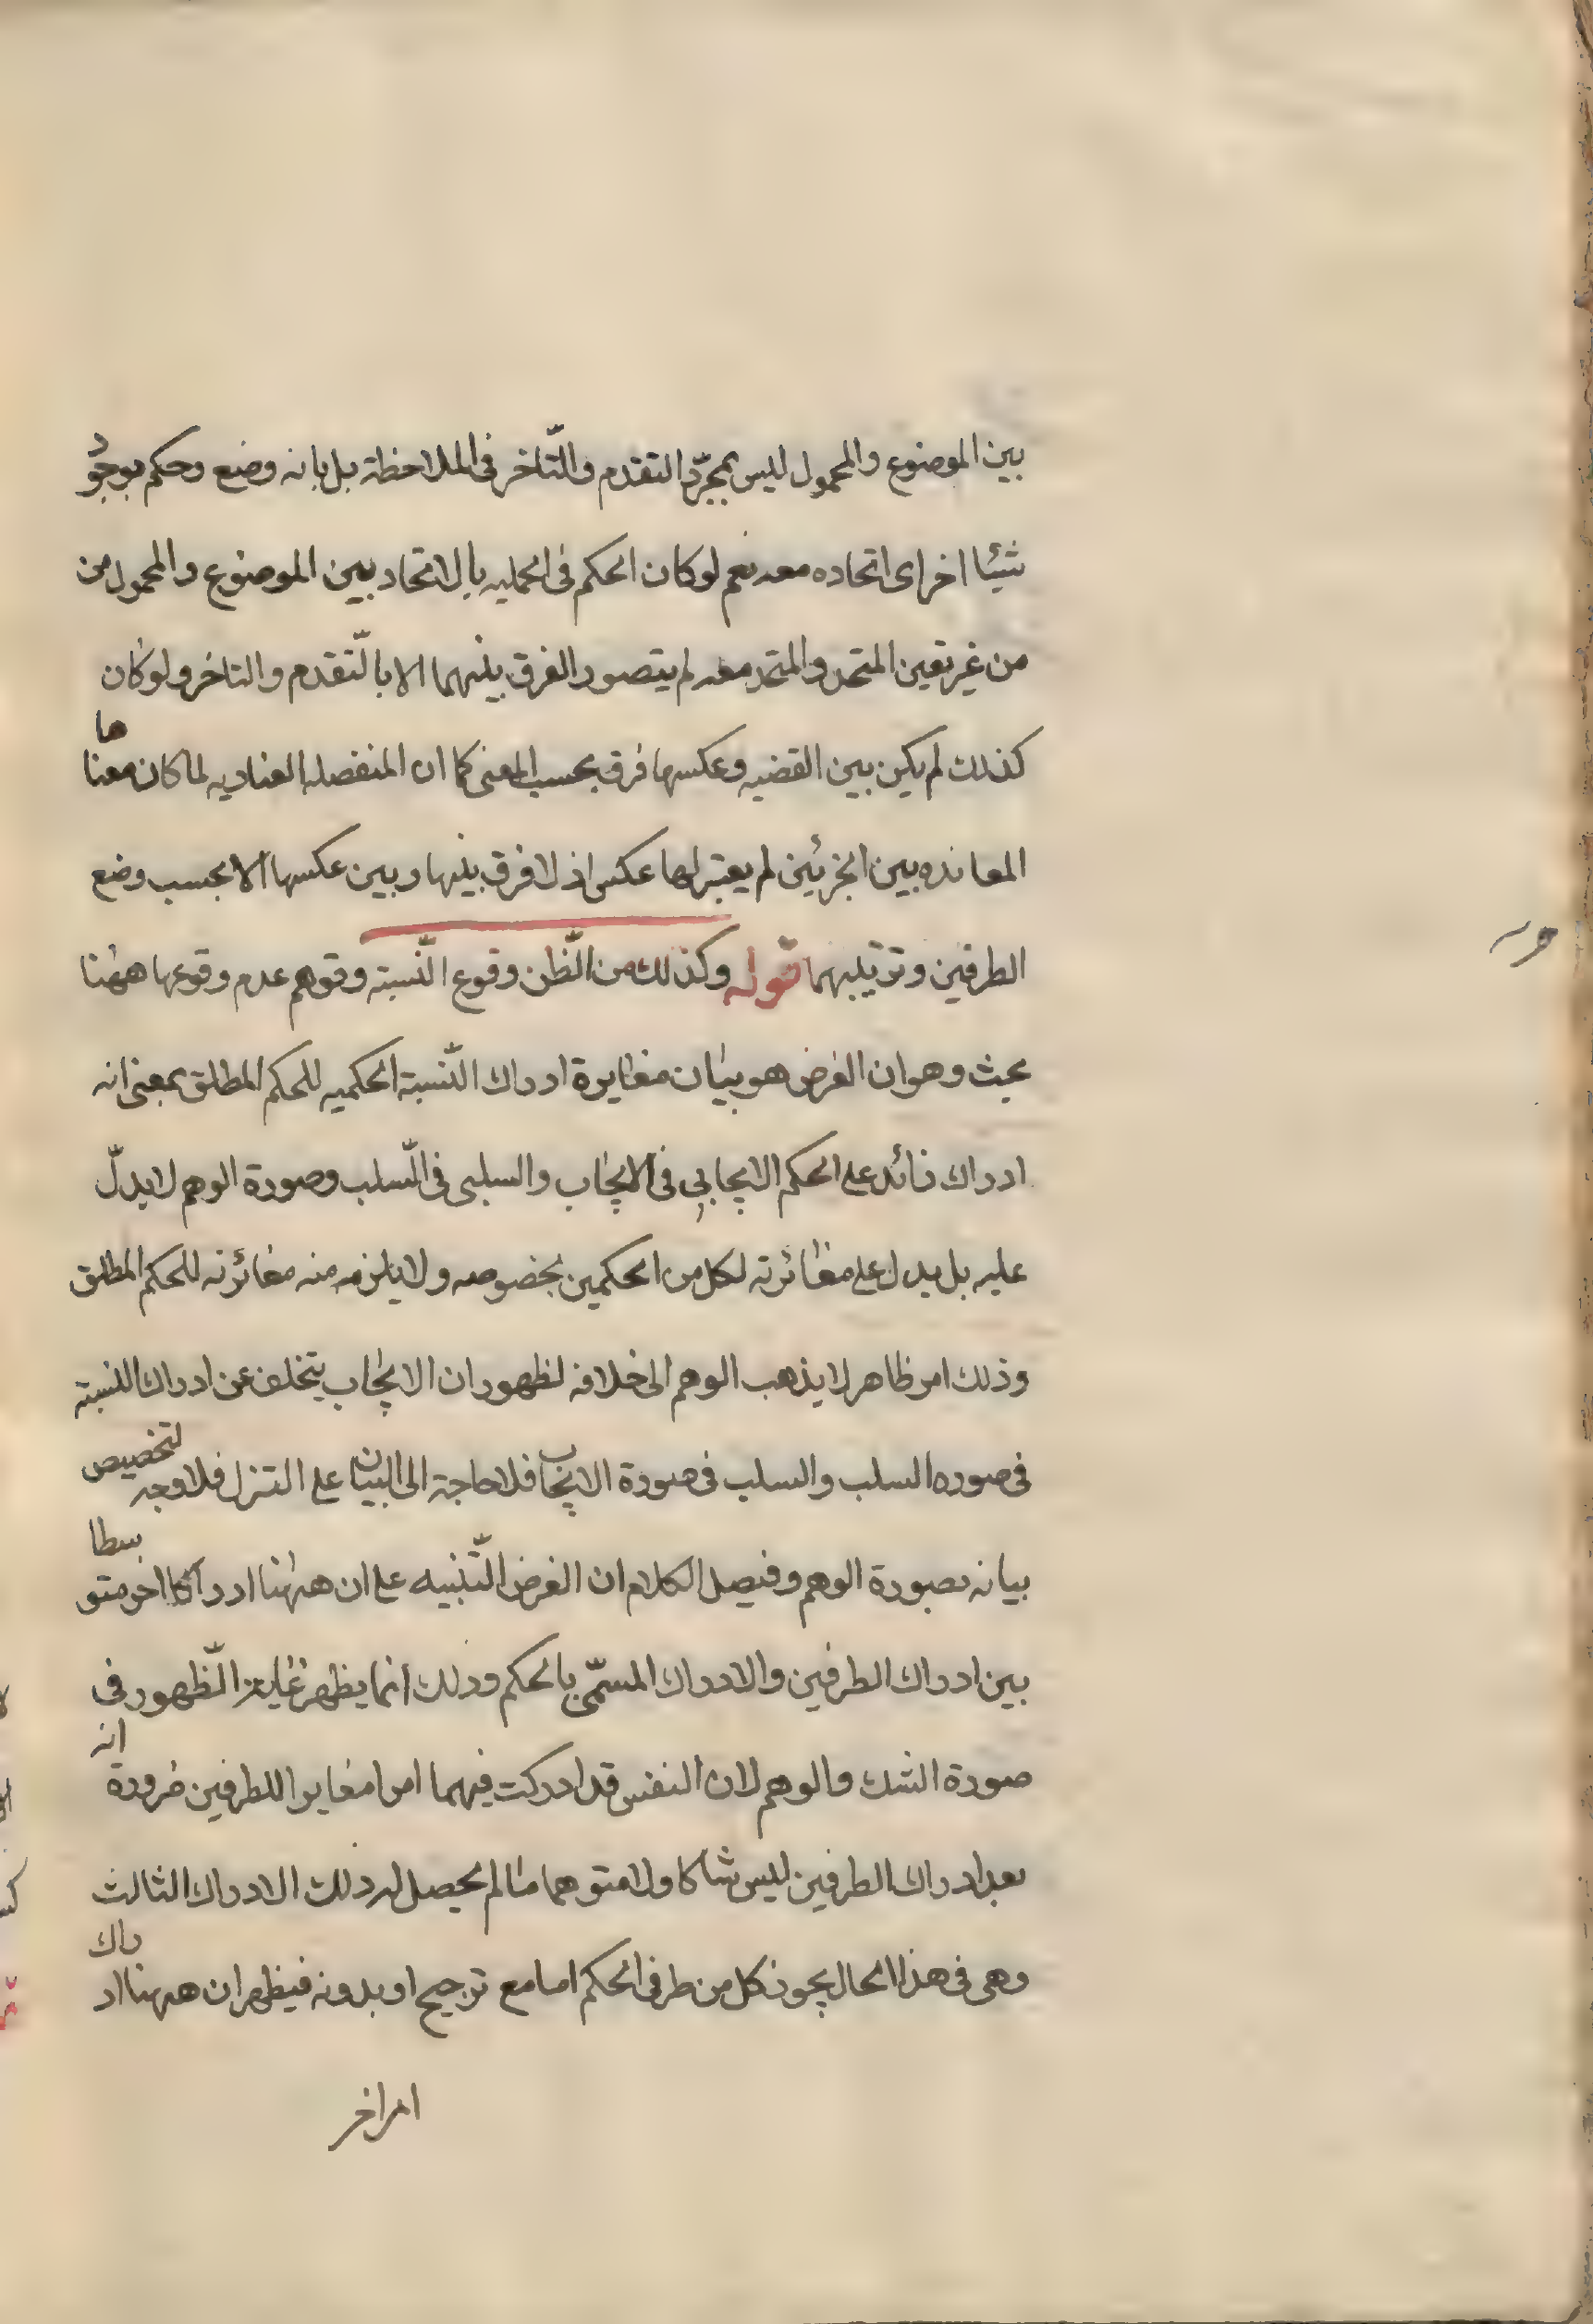 بين الموضوع والمحمول ليس بمجرّد التقدم والتّاخر فى الملاحظة بل بانه وضع وحكم بوجود
شيئا اخر اى اتحاده معه نعم لو كان الحكم فى الحمليه بالاتحاد بين الموضوع والمحمول من
من غير تعين المتحد والمتحد معه لم يتصور الفرق بينهما الا بالتّقدم والتاخر ولو كان
كذلك لم يكن بين القضيه وعكسها فرق بحسب المعنى كما ان المنفصله العناديه لما كان معناها
المعانده بين الجزئين لم يعتبر لها عكس اذ لا فرق بينها وبين عكسها الا بحسب وضع
الطرفين وترتيبهما قوله وكذلك من الّظن وقوع النّسبة وتوهم عدم وقوعها ههنا
بحث وهو ان الغرض هو بيان مغايرة ادراك النّسبة الحكميه للحكم المطلق بمعنى انه
ادراك زائد على الحكم الايجابى فى الايجاب والسلبى فى السّلب وصورة الوهم لا يدلّ
عليه بل يدل على مغائرته لكل من الحكمين بخصوصه ولا يلزم منه مغائرته للحكم المطلق
وذلك امر ظاهر لا يذهب الوهم الى خلافه لظهور ان الايجاب يتخلف عن ادراك النسبة
فى صوره السلب والسلب فى صورة الايجاب فلا حاجة الى البيان على التنزل فلا وجه لتخصيص
بيانه بصورة الوهم وفيصل الكلام ان الغرض التّنبيه على ان ههنا ادراكا اخر متوسطا
بين ادراك الطرفين والادراك المسمّى بالحكم وذلك انما يظهر غاية الّظهور فى
صورة الشك والوهم لان النفس قد ادركت فيهما امرا مغايرا للطرفين ضرورة انه
بعد ادراك الطرفين ليس شاكا ولا متوهما ما لم يحصل له ذلك الادراك الثالث
وهى فى هذا الحال يجوز كل من طرفى الحكم اما مع ترجيح او بدونه فيظهر ان ههنا ادراك
امرا اخر